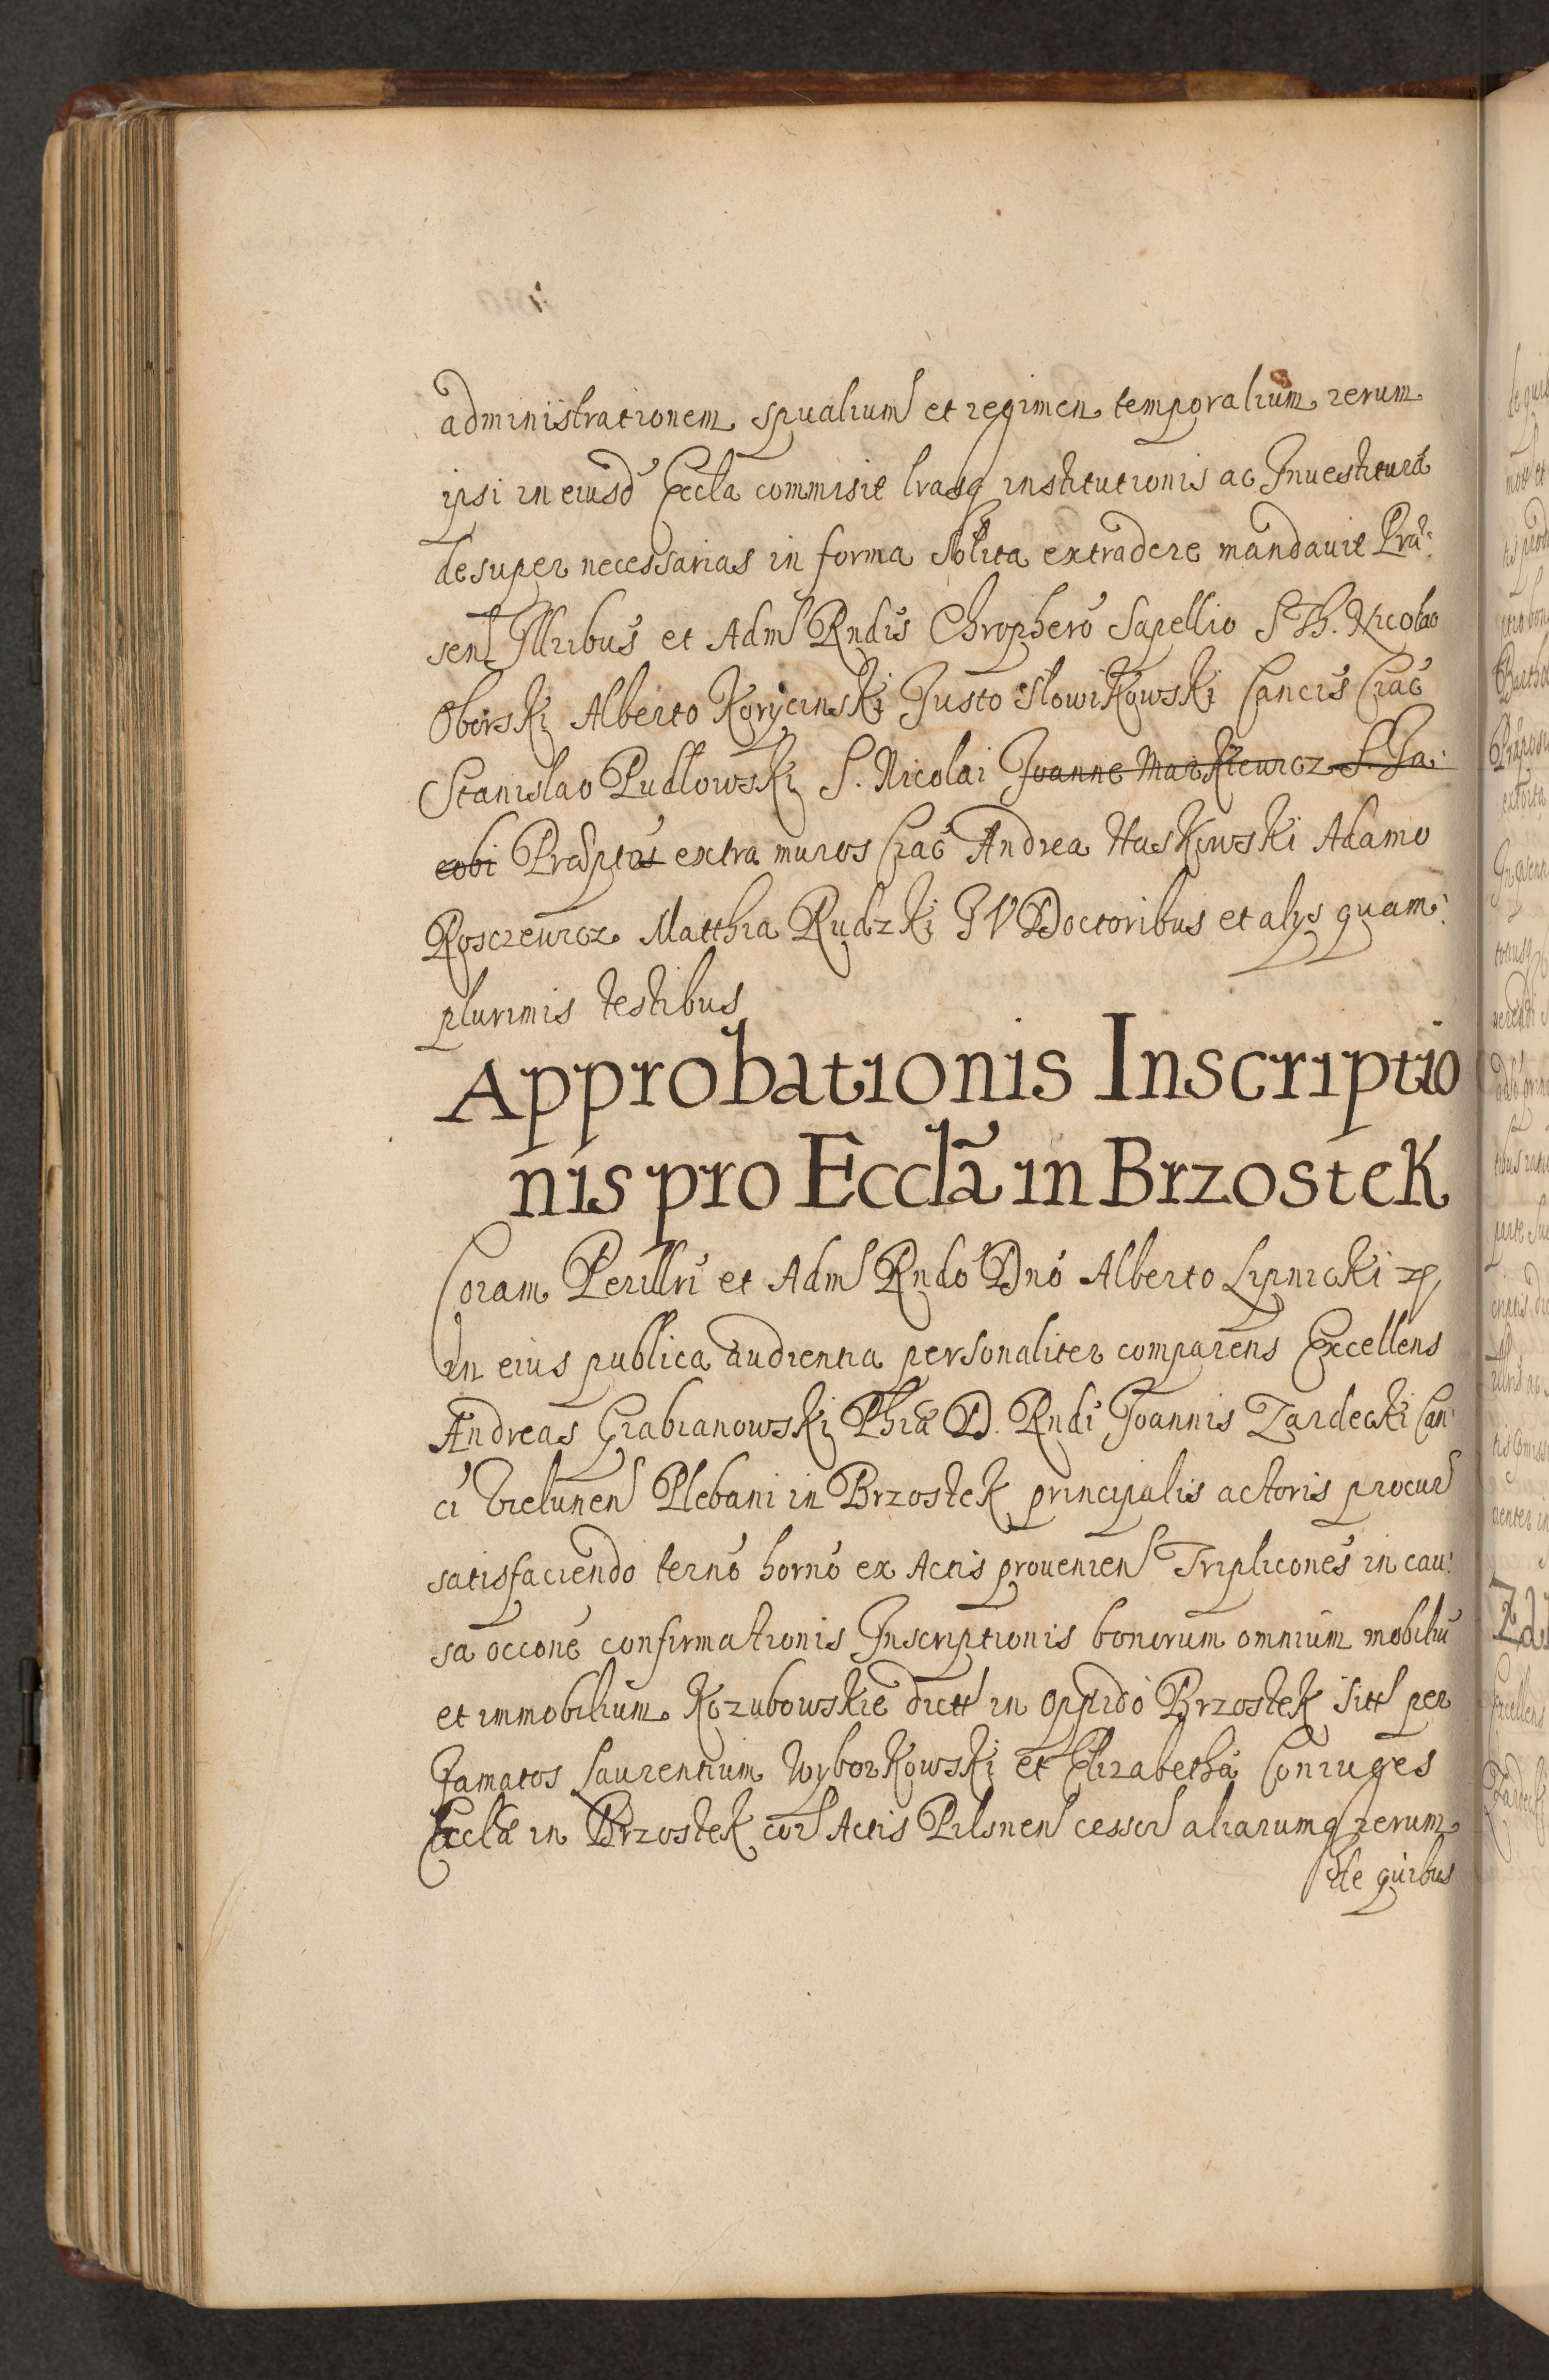 administrationem spualium et regimen temporalium rerum
ipsi in eiusd Eccla commisit lrasq institutionis ac Inuestitura
desuper necessarias in forma solita extradere mandauit Præ:
sen Illribus et Adm Rndis Chrophero Sapellio S Th. Nicolao
Oborski Alberto Korycinski Justo Slowikowski Cancis Crac
Stanislao Pudlowski S. Nicolai Joanne Markiewicz S. Ja:
cobi Præptis extra muros Crac Andrea Huskowski Adamo
Rosczewicz Matthia Rudzki J V Doctoribus et alys quam:
plurimis testibus
Approbationis Inscriptio
nis pro Ecclã in Brzostek
Coram Perillri et Adm Rndo Dno Alberto Lipnicki
in eius publica audientia personaliter comparens Excellens
Andreas Grabianowski Phiæ D. Rndi Joannis Zardecki Can:
ci Vielunen Plebani in Brzostek principalis actoris procur
satisfaciendo terno horno ex Actis prouenien Triplicones in cau:
sa occone confirmationis Inscriptionis bonorum omnium mobiliu
et immobilium Kozubowskie dict in oppido Brzostek sitt per
Famatos Laurentium Wyborkowski et Elizabetha Coniuges
Eccla in Brzostek cor Actis Pilsnen cessor aliarumq rerum
de quibus